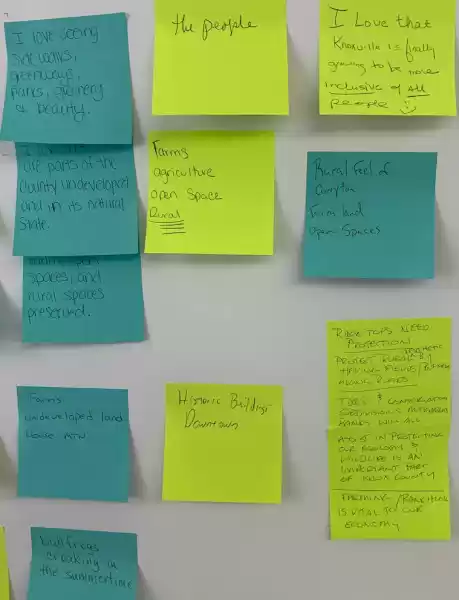 I love seeing
sidewalks,
greenways,
parks, greenery
& beauty.
the people
I Love that
Knoxville is finally
growing to be more
inclusive of all
people
are parts of the
County undeveloped
and in its natural
state.
Farms
agriculture
open space
Rural
Rural Feel of
County
Farm land
Open Spaces
spaces, and
rural spaces
preserved.
Ridge tops need
protection
Protect rural &
along roads
Trees &
Aids in protecting
our economy &
wildlife is an
important part
of Knox County
Farming / Ranching
is vital to our
economy
Farms
undeveloped land
Historic Buildings
Downtown
bullfrogs
croaking in
the summertime